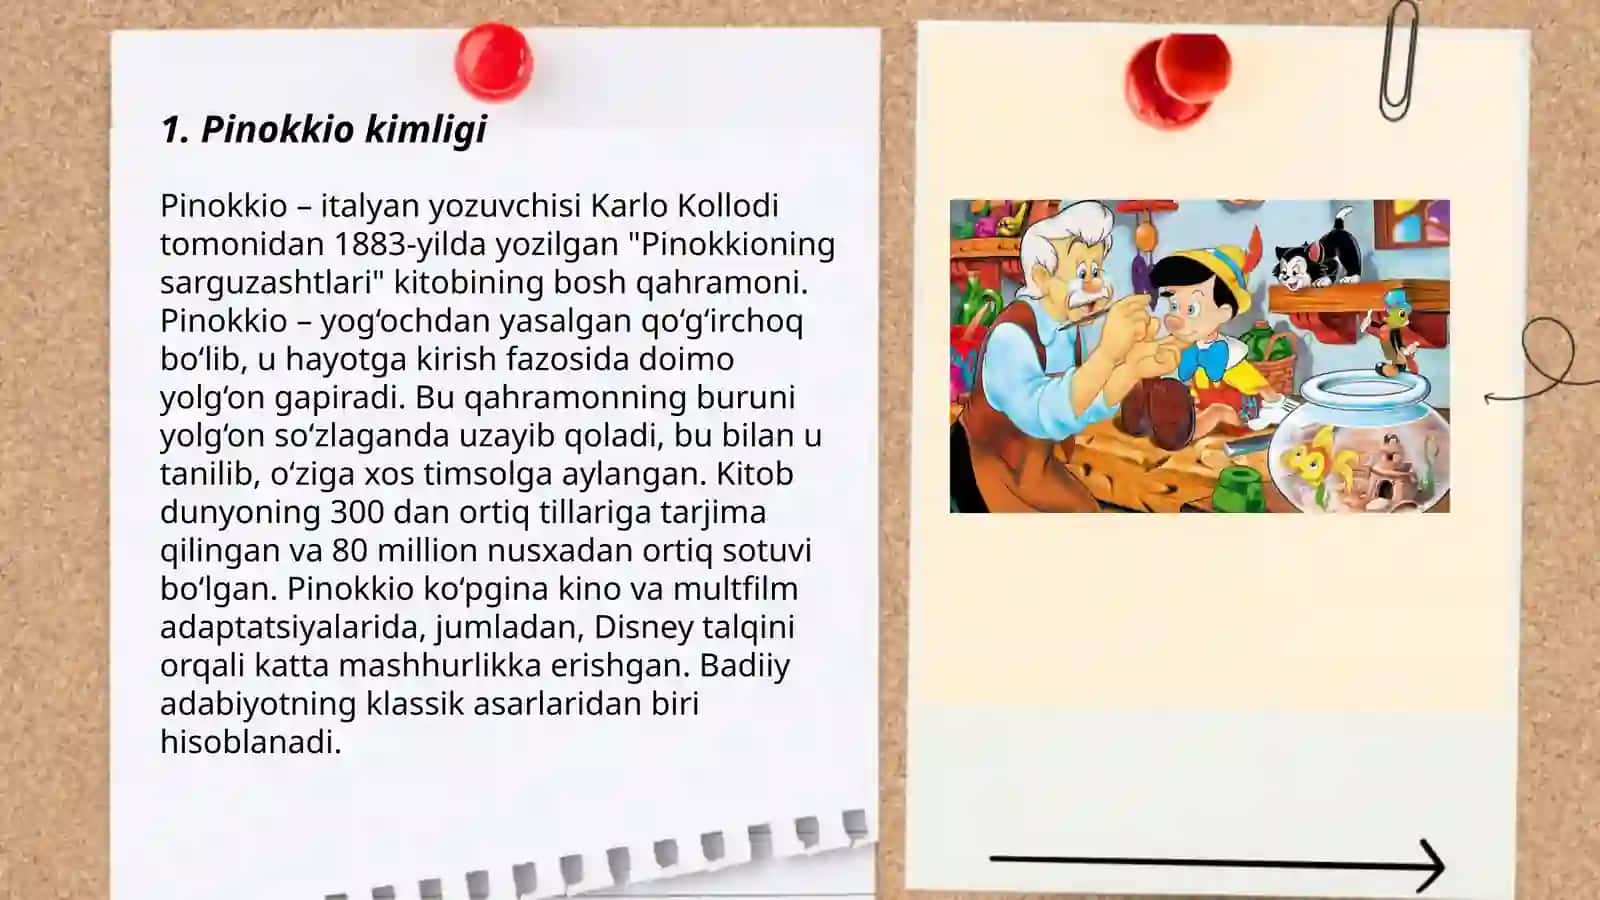 1. Pinokkio kimligi
Pinokkio – italyan yozuvchisi Karlo Kollodi
tomonidan 1883-yilda yozilgan "Pinokkioning
sarguzashtlari" kitobining bosh qahramoni.
Pinokkio – yog‘ochdan yasalgan qo‘g‘irchoq
bo‘lib, u hayotga kirish fazosida doimo
yolg‘on gapiradi. Bu qahramonning buruni
yolg‘on so‘zlaganda uzayib qoladi, bu bilan u
tanilib, o‘ziga xos timsolga aylangan. Kitob
dunyoning 300 dan ortiq tillariga tarjima
qilingan va 80 million nusxadan ortiq sotuvi
bo‘lgan. Pinokkio ko‘pgina kino va multfilm
adaptatsiyalarida, jumladan, Disney talqini
orqali katta mashhurlikka erishgan. Badiiy
adabiyotning klassik asarlaridan biri
hisoblanadi.